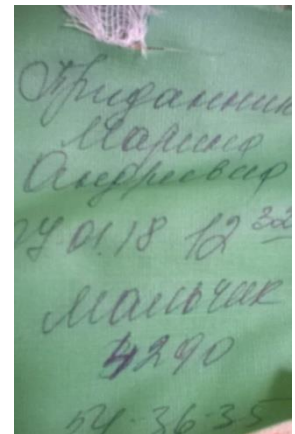 Приданник
Марина
Андривна
04 01.18 12 32
мальчик
4290
54-36-35